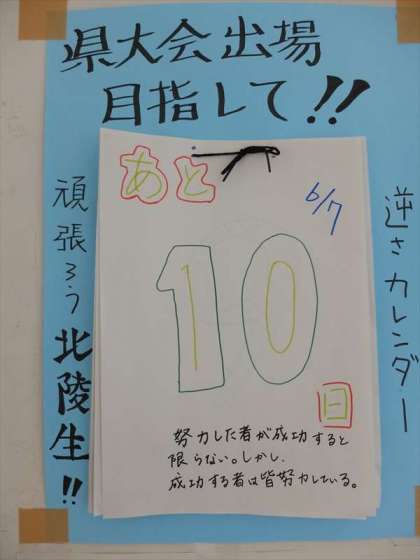 県大会出場
目指して!!
あと
6/7
10
日
努力した者が成功すると
限らない。しかし、
成功する者は皆努力している。
逆さカレンダー
頑張ろう北陵生!!